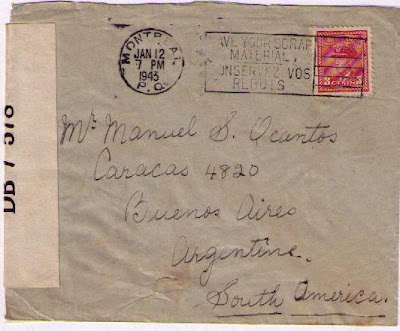 MONTREAL
JAN 12
7 PM
1943
P.Q.
SAVE YOUR SCRAP
MATERIAL,
CONSERVEZ VOS
REBUTS
3 CENTS 3
DB / 578
Mr Manuel S. Ocantos
Caracas 4820
Buenos Aires
Argentine.
South America.